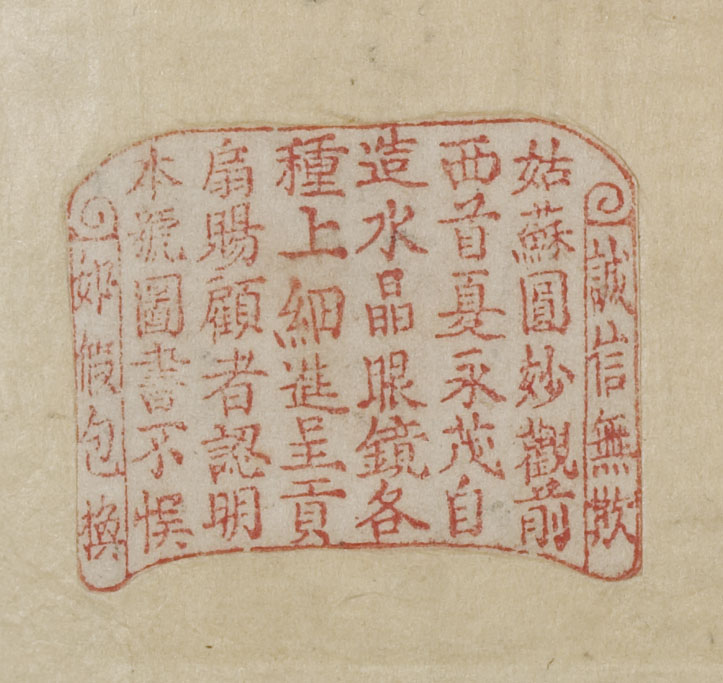 誠信無欺
姑蘇圓妙觀前
西首夏永茂自
造水晶眼鏡各
種上細進呈貢
扇賜顧者認明
本號圖書不悞
如假包換